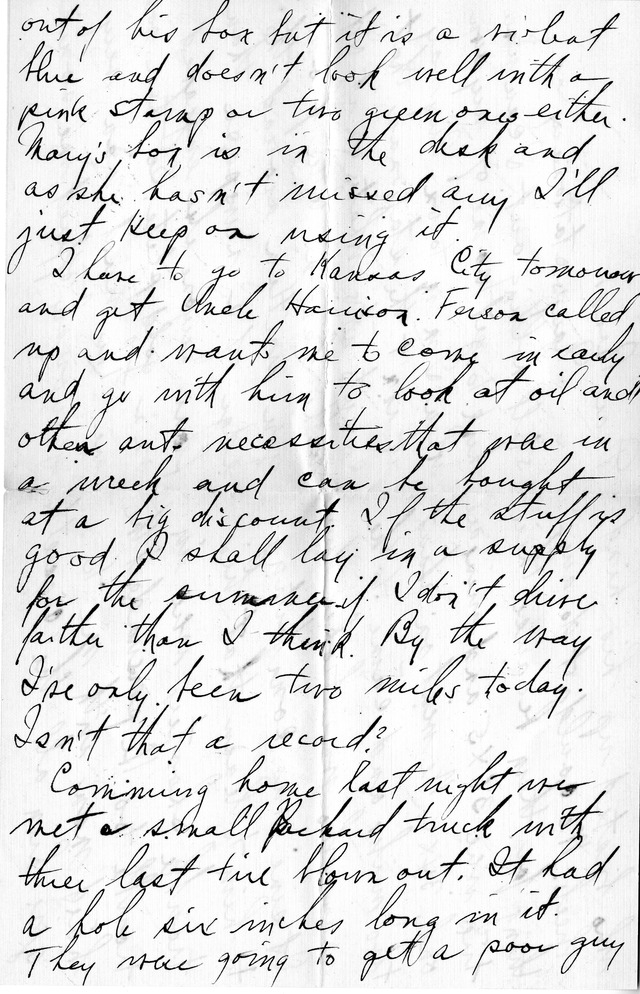 out of his box but it is a violent
blue and doesn't look well with a
pink stamp or two green ones either.
Mary's box is in the desk and
as she hasn't missed any I'll
just keep on using it.
I have to go to Kansas City tomorrow
and get Uncle Harrison. Ferson called
up and wants me to come in early
and go with him to look at oil and
other aut. necessities that were in
a wreck and can be bought
at a big discount. If the stuff is
good I shall lay in a supply
for the summer if I don't drive
farther than I think. By the way
I've only been two miles today.
Isn't that a record?
Comming home last night we
met a small Packard truck with
thier last tire blown out. It had
a hole six inches long in it.
They were going to get a poor guy